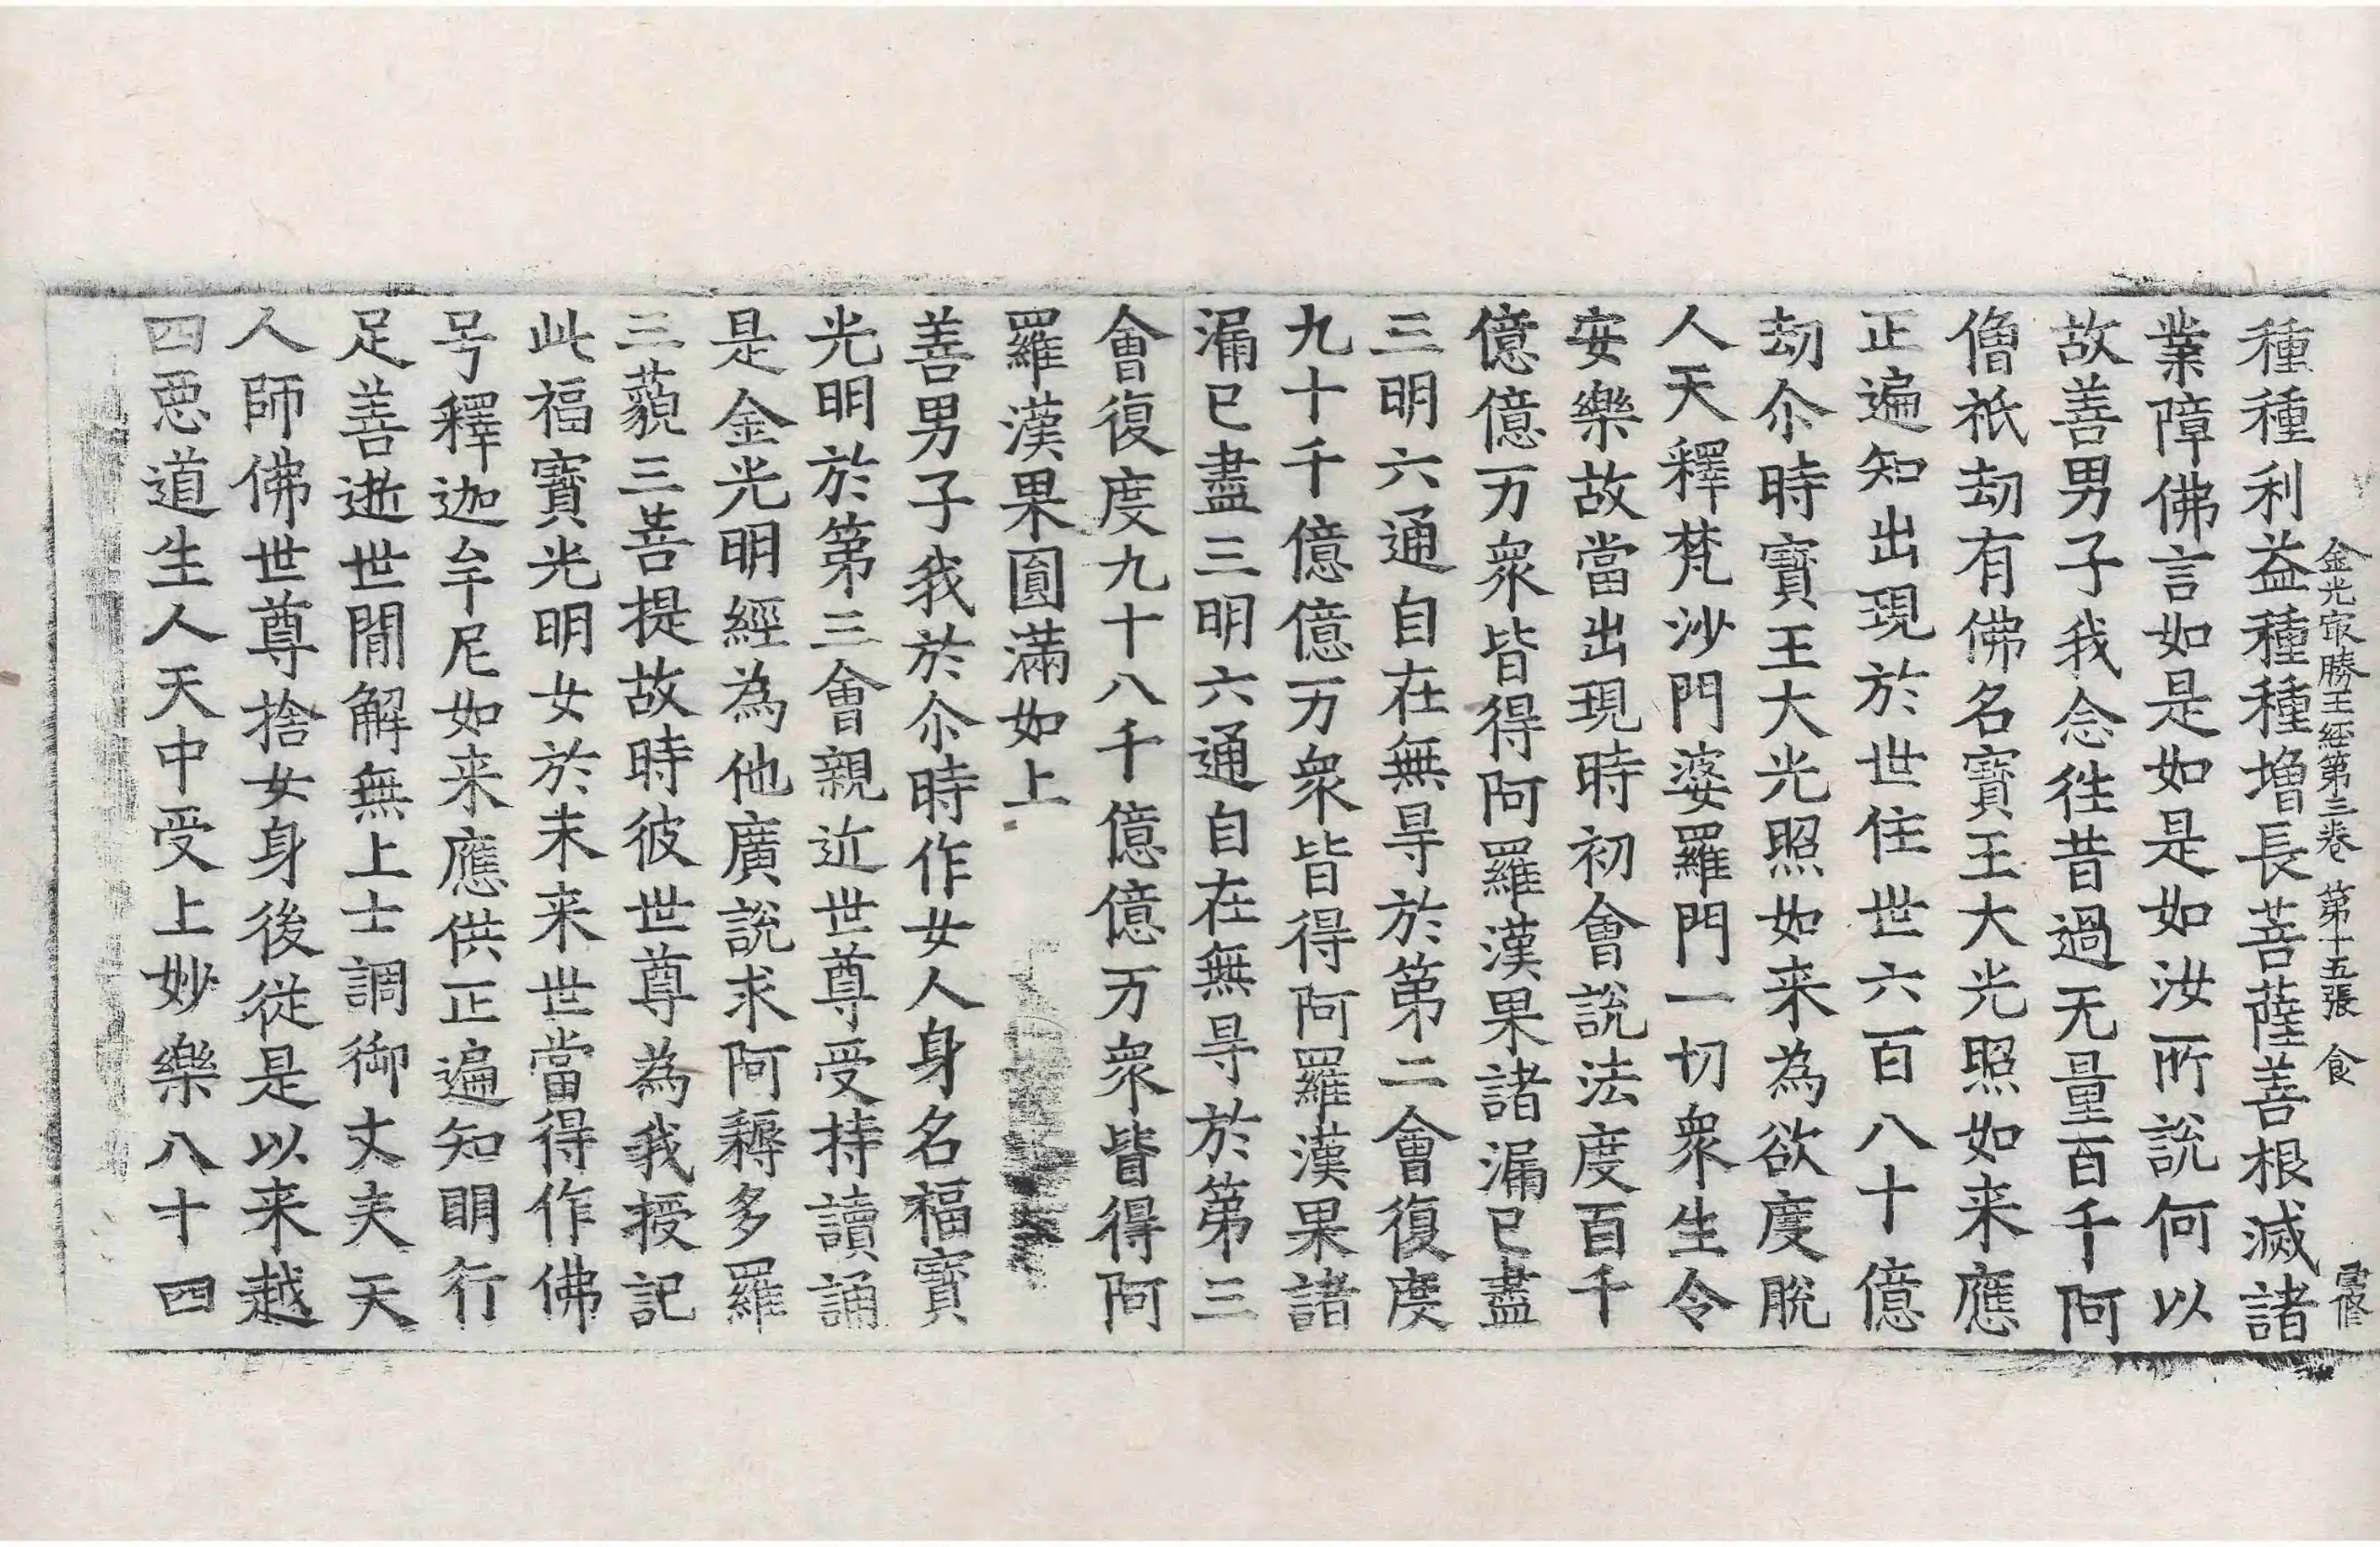 金光㝡勝王經第三卷　第十五張　食
種種利益種種增長菩薩善根滅諸
業障佛言如是如是如汝所說何以
故善男子我念往昔過无量百千阿
僧祇劫有佛名寶王大光照如来應
正遍知出現於世住世六百八十億
劫尒時寶王大光照如来為欲度脫
人天釋梵沙門婆羅門一切衆生令
安樂故當出現時初會說法度百千
億億万衆皆得阿羅漢果諸漏已盡
三明六通自在無㝵於第二會復度
九十千億億万衆皆得阿羅漢果諸
漏已盡三明六通自在無㝵於第三
會復度九十八千億億万衆皆得阿
羅漢果圓滿如上
善男子我於尒時作女人身名福寶
光明於第三會親近世尊受持讀誦
是金光明經為他廣說求阿耨多羅
三藐三菩提故時彼世尊為我授記
此福寶光明女於未来世當得作佛
号釋迦牟尼如来應供正遍知明行
足善逝世閒解無上士調御丈夫天
人師佛世尊捨女身後從是以来越
四惡道生人天中受上妙樂八十四